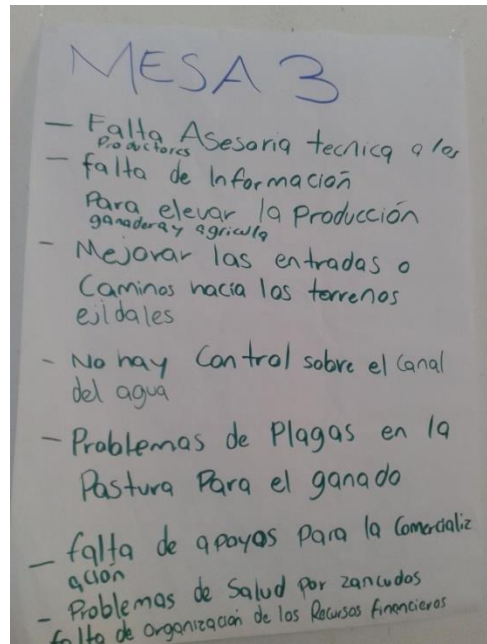 MESA 3
— Falta Asesoria tecnica a los
Productores
— falta de Información
Para elevar la Producción
ganadera y agricula
- Mejorar las entradas o
Caminos hacia los terrenos
ejidales
- No hay Control sobre el Canal
del agua
- Problemas de Plagas en la
Pastura Para el ganado
— falta de apoyos Para la Comercializ
ación
- Problemas de Salud por zancudos
falta de organización de los Recursos financieros